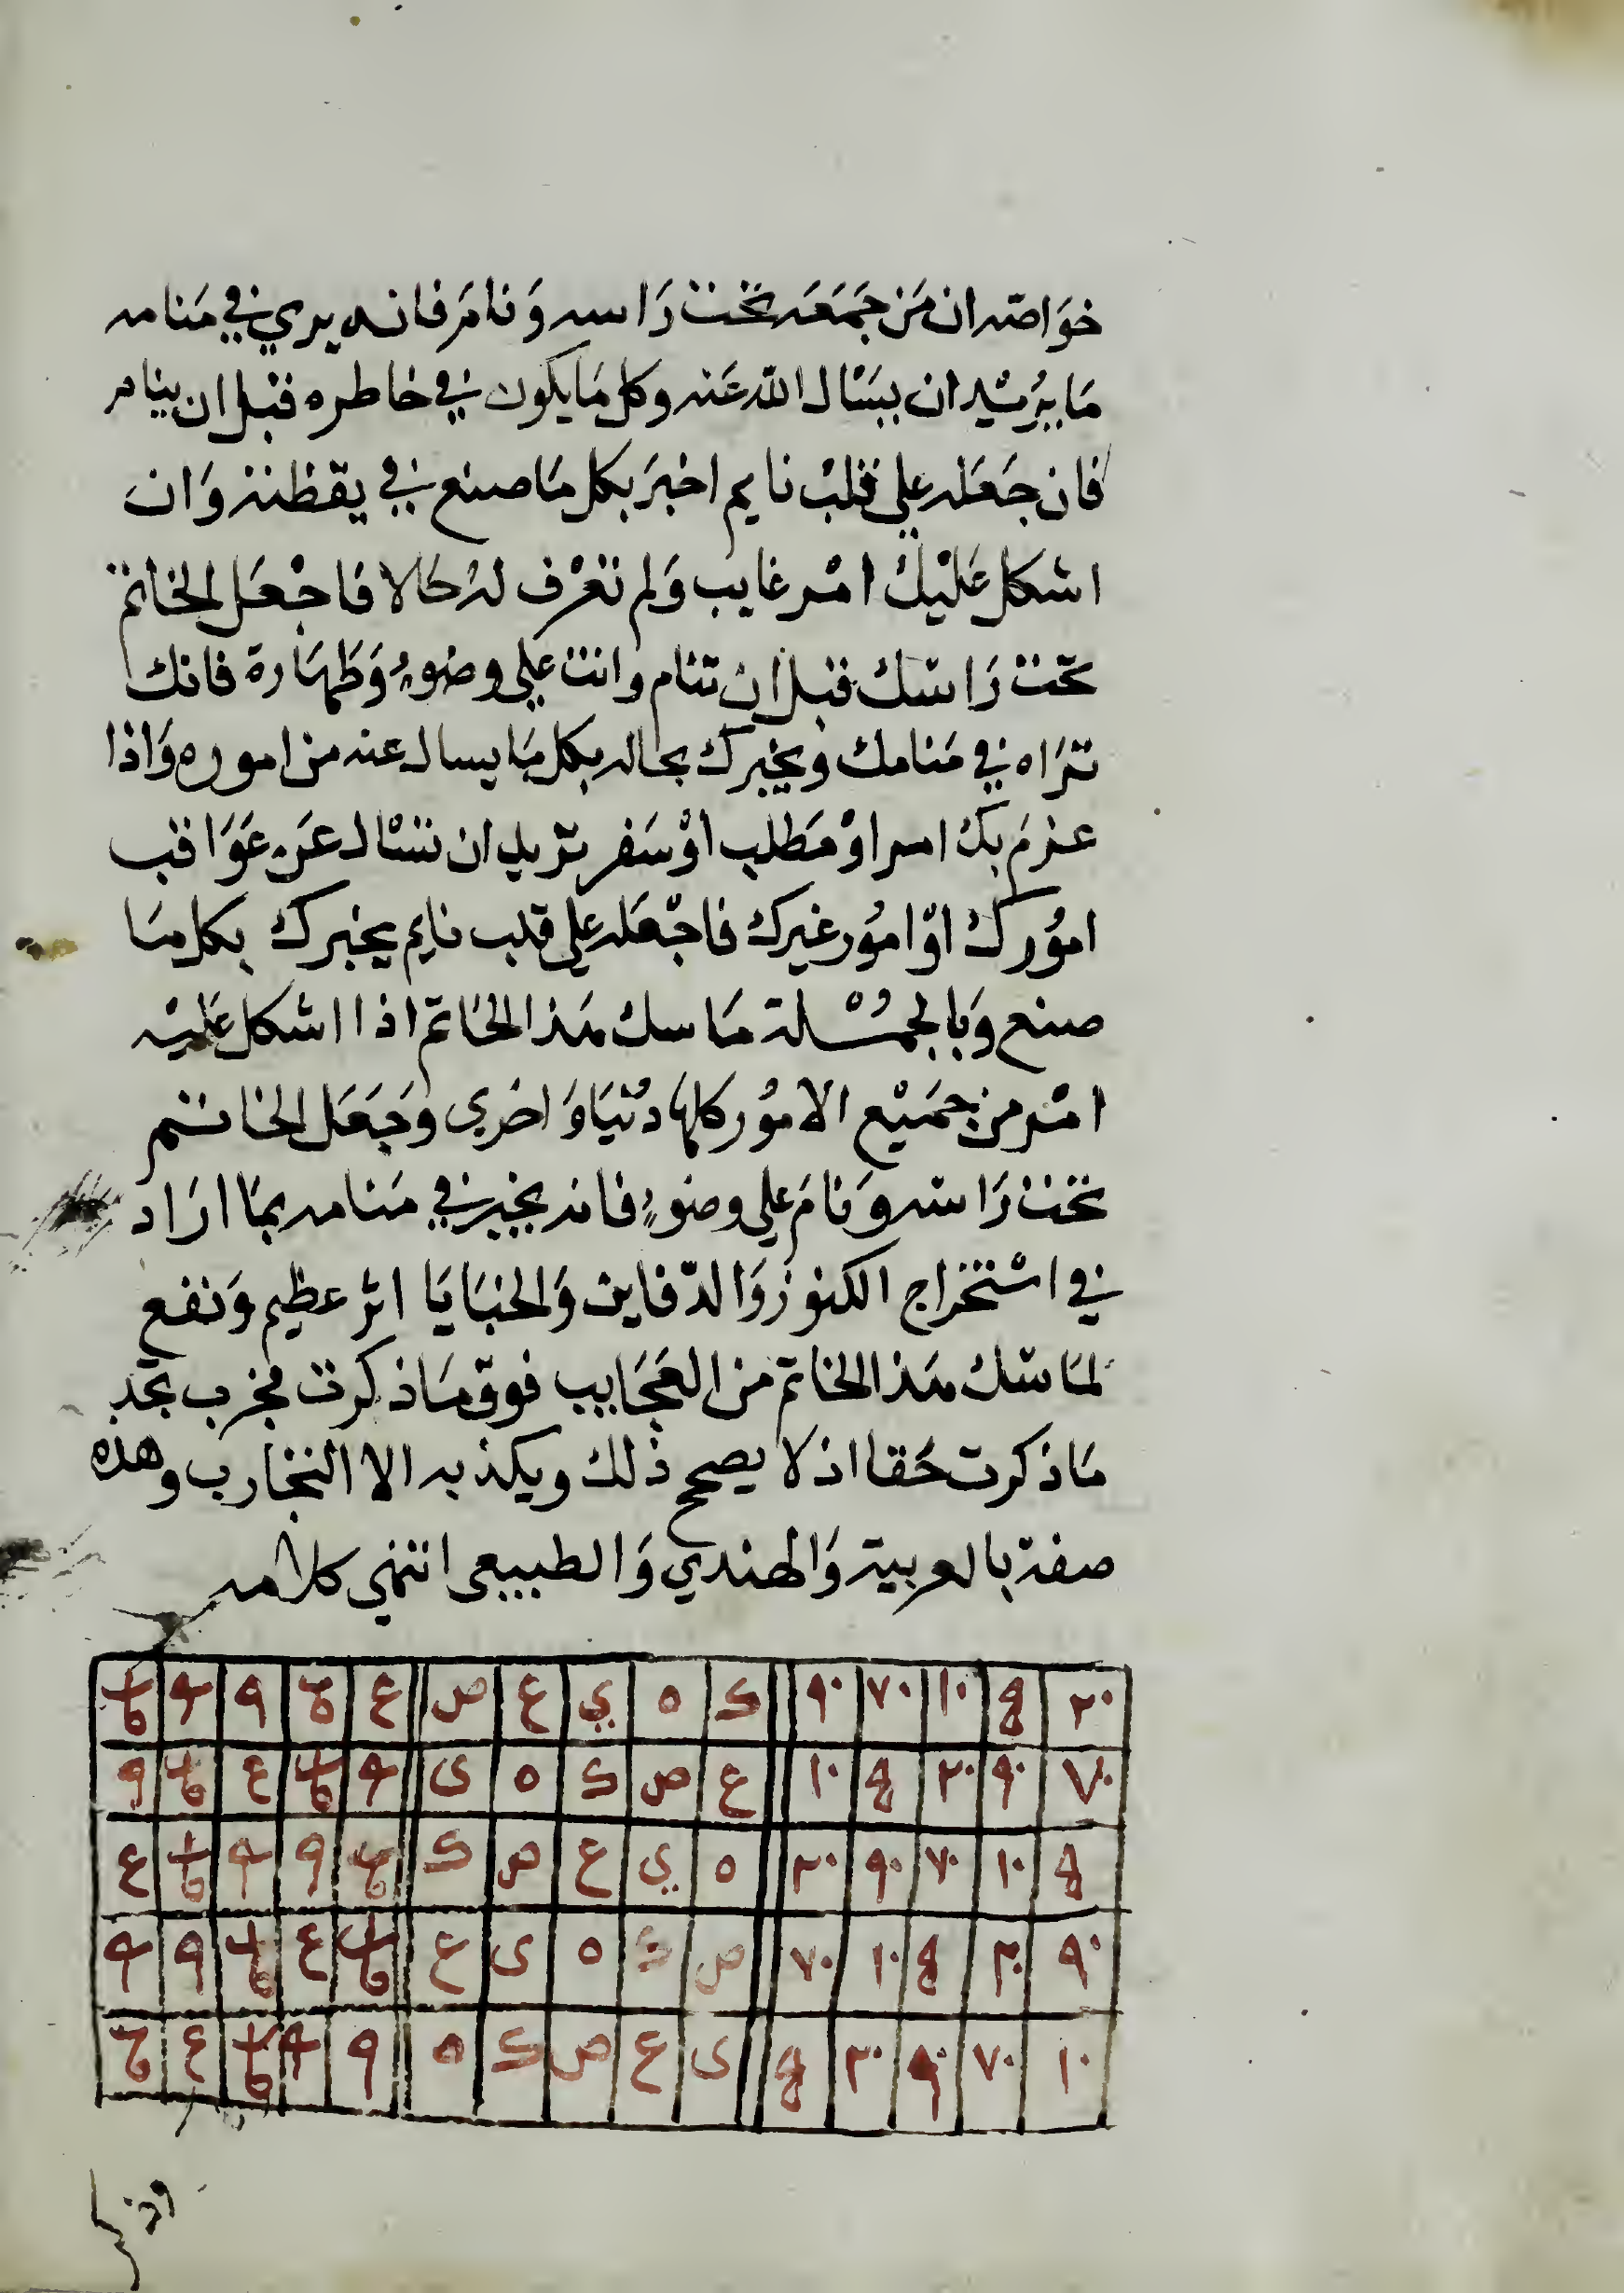 خوَاصّه ان مَن جَمَعَه تحت رَاسه وَنامَ فانه يري في مَنامه
مَا يُريْد ان يسَال الله عَنه وكل مَا يكون في خاطره قبل ان ينام
فان جَعَله علي قلبْ نايم اخبَر بكل مَا صنع في يقظته وَان
اشكل عَليْك امْر غايب وَلم تعْرف لهُ حَالا فَاجْعَل الخاتم
تحت رَاسَك قبل ان تنام وانت علي وضوءٍ وَطهَارة فانك
ترَاه في مَنامك ويخبرك بحاله بكل مَا يسال عنه من اموره وَاذا
عزمَ بك امر اوْ مَطلب اوْ سَفر تريد ان تسْال عَن عَوَاقب
امُورك اوْ امُور غيرك فاجْعَله علي قلب نايم يخبرك بكل مَا
صنع وَبالجمُسْلة مَاسك هَذا الخاتم اذا اشكل عَليْه
امْر من جمَيْع الامُور كلها دنيَا وَاخري وَجَعَل الخاتم
تحت رَاسه وَنامَ علي وضوءٍ فانه يخبر في مَنامه بمَا ارَاد
في اسْتخراج الكنوز وَالدّفاين وَالخبَايَا اثر عظيم وَنفع
لمَاسَك هَذا الخاتم من العَجَايب فوق مَا ذكرت فجرب تجَد
مَا ذكرت حَقا اذ لا يصح ذلك ويكذبه الا التجَارب وهذه
صفته بالعربية وَالهندي وَالطبيعي انتهي كلامه
٢٠ ١٠ ٧٠ ٩٠ ك ه ي ع ص
٧٠ ٩٠ ٢٠ ١٠ ع ص ك ه ى
١٠ ٧٠ ٩٠ ٢٠ ه ي ع ص ك
٩٠ ٢٠ ١٠ ٧٠ ص ك ه ى ع
١٠ ٧٠ ٩٠ ٢٠ ى ع ص ك ه